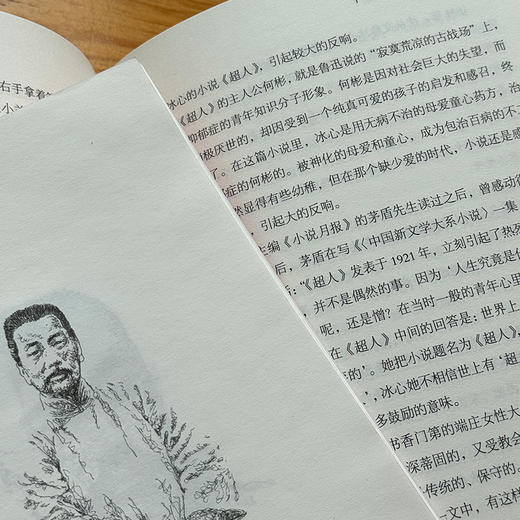 右手拿着
小说
冰心的小说《超人》，引起较大的反响。
《超人》的主人公何彬，就是鲁迅说的“寂寞荒凉的古战场”上，
抑郁症的青年知识分子形象。何彬是因对社会巨大的失望，而
极厌世的，却因受到一个纯真可爱的孩子的启发和感召，终
了。在这篇小说里，冰心是用无病不治的母爱童心药方，治
症的何彬的。被神化的母爱和童心，成为包治百病的不
然显得有些幼稚，但在那个缺少爱的时代，小说还是感
，引起大的反响。
主编《小说月报》的茅盾先生读过之后，曾感动得
后，茅盾在写《〈中国新文学大系小说〉一集
：“《超人》发表于1921年，立刻引起了热烈
，并不是偶然的事。因为‘人生究竟是
呢，还是憎？在当时一般的青年心里
在《超人》中间的回答是：世界上
的’。她把小说题名为《超人》，
’，冰心她不相信世上有‘超
多鼓励的意味。
书香门第的端庄女性大
深蒂固的，又受教会
传统的、保守的。
一文中，有这样